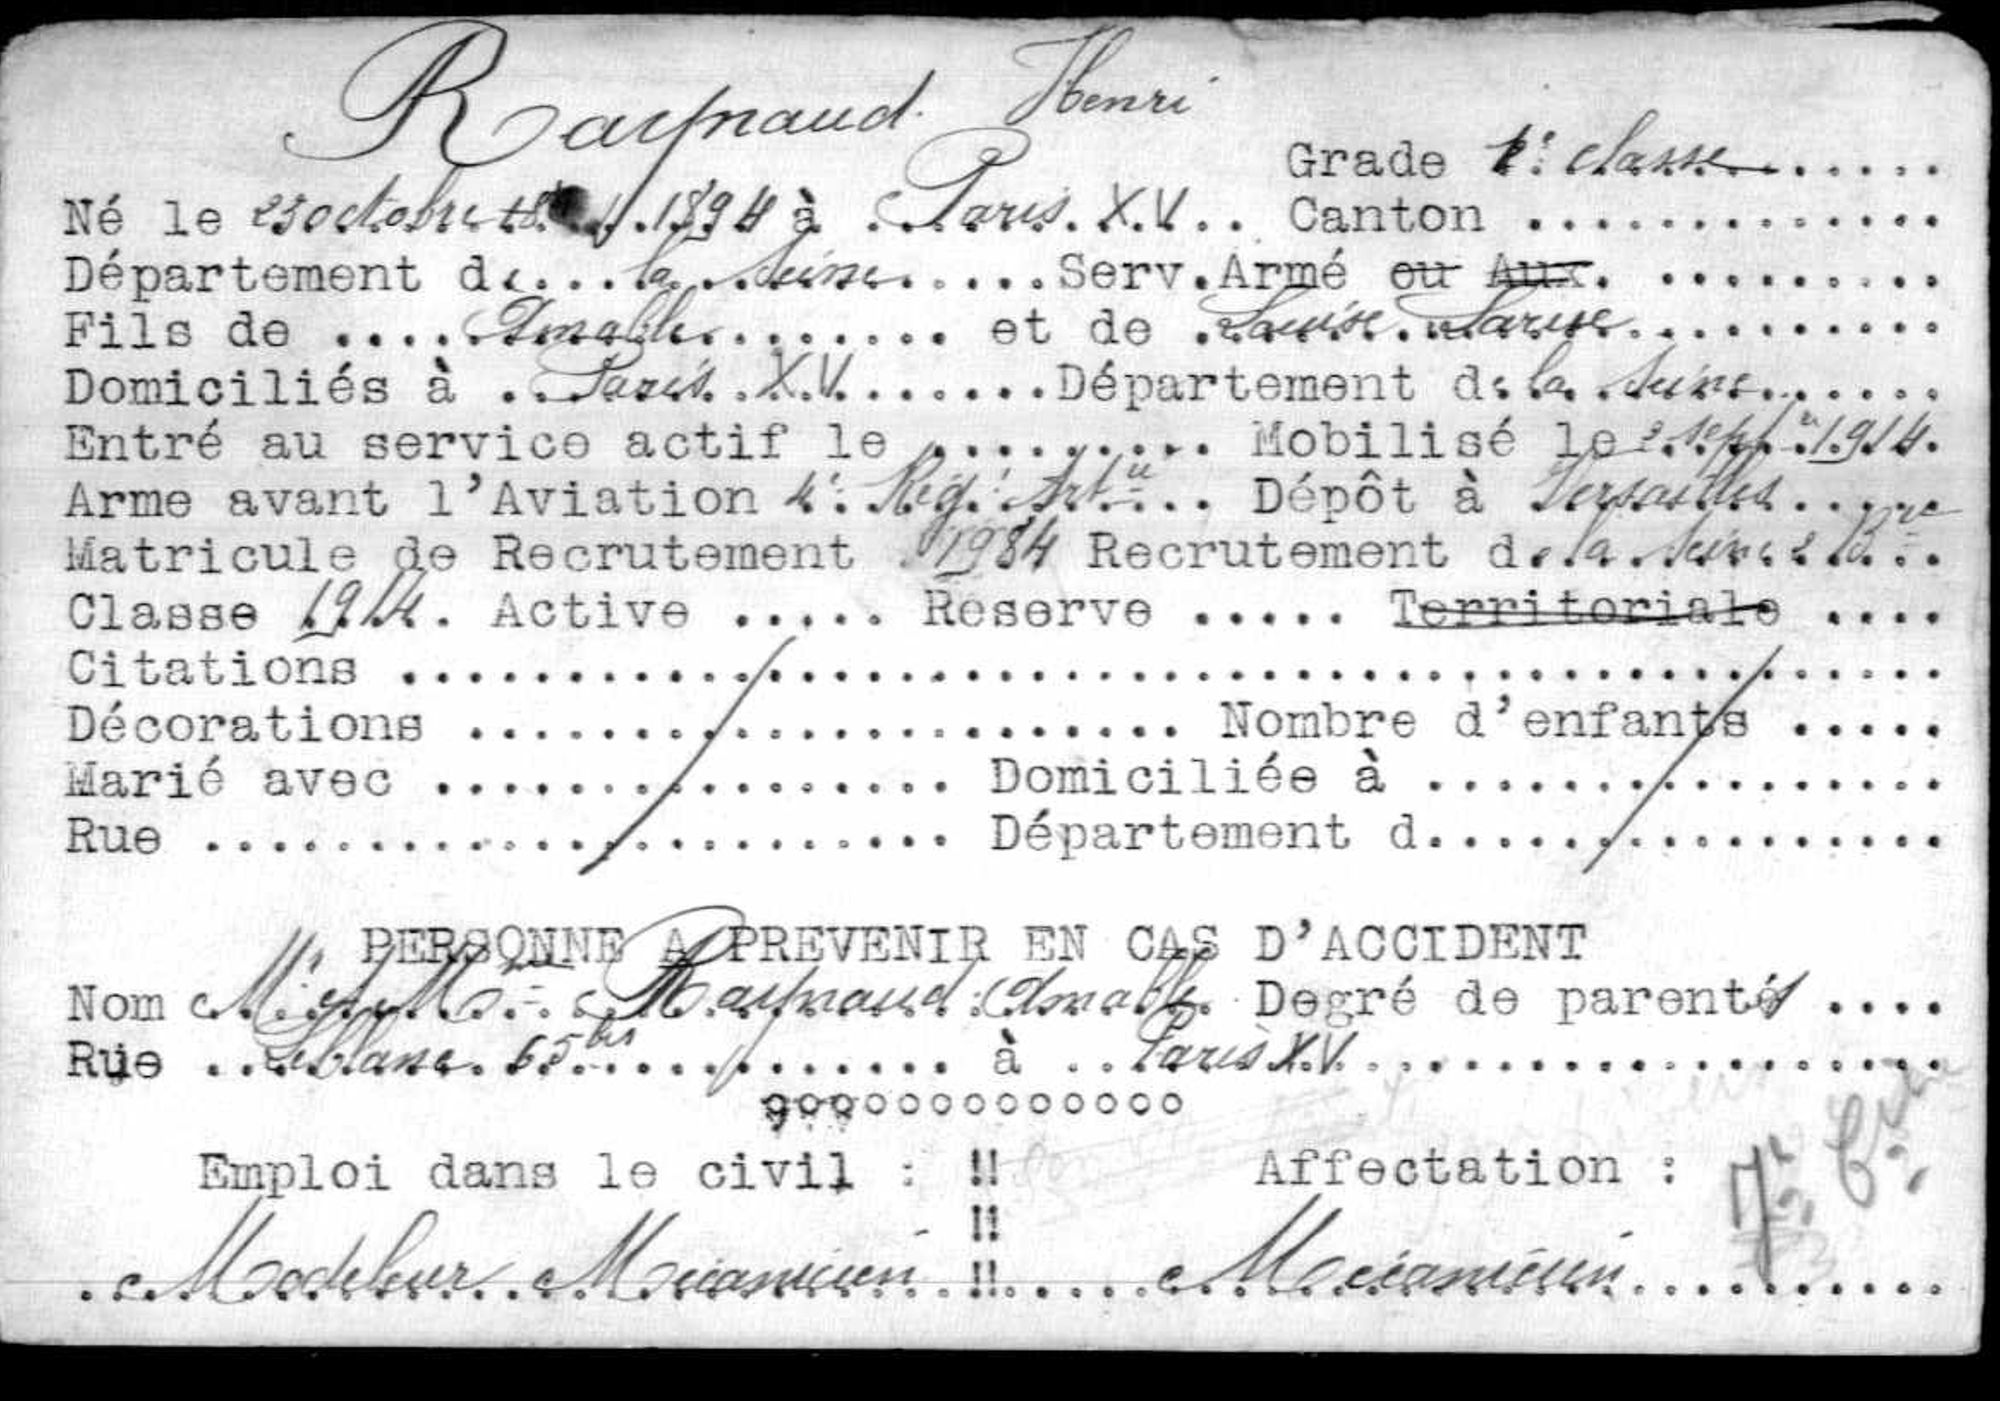 Raynaud Henri
Grade 2e classe......
Né le 23 octobre 1894 à Paris. XV.. Canton .............
Département de...la Seine.....Serv.Armé ou Aux. .........
Fils de ....Amable........ et de .Louise...........
Domiciliés à ..Paris. XV.......Département de la Seine......
Entré au service actif le ......... Mobilisé le 2 septre 1914.
Arme avant l'Aviation 4e Régt Artie.. Dépôt à Versailles.....
Matricule de Recrutement 1984 Recrutement de la Seine 2 Bau..
Classe 1914. Active ..... Reserve ..... Territoriale ....
Citations ...............................................
Décorations ...................... Nombre d'enfants .....
Marié avec ................ Domiciliée à ................
Rue ....................... Département d................
PERSONNE A PREVENIR EN CAS D'ACCIDENT
Nom Mr et Mme Raynaud Amable. Degré de parenté ....
Rue ..Leblanc. 65bis.......... à ..Paris XV..................
ooooooooooooo
Emploi dans le civil : !! Affectation :
!!
.Modeleur..Mécanicien.!!.....Mécanicien..........